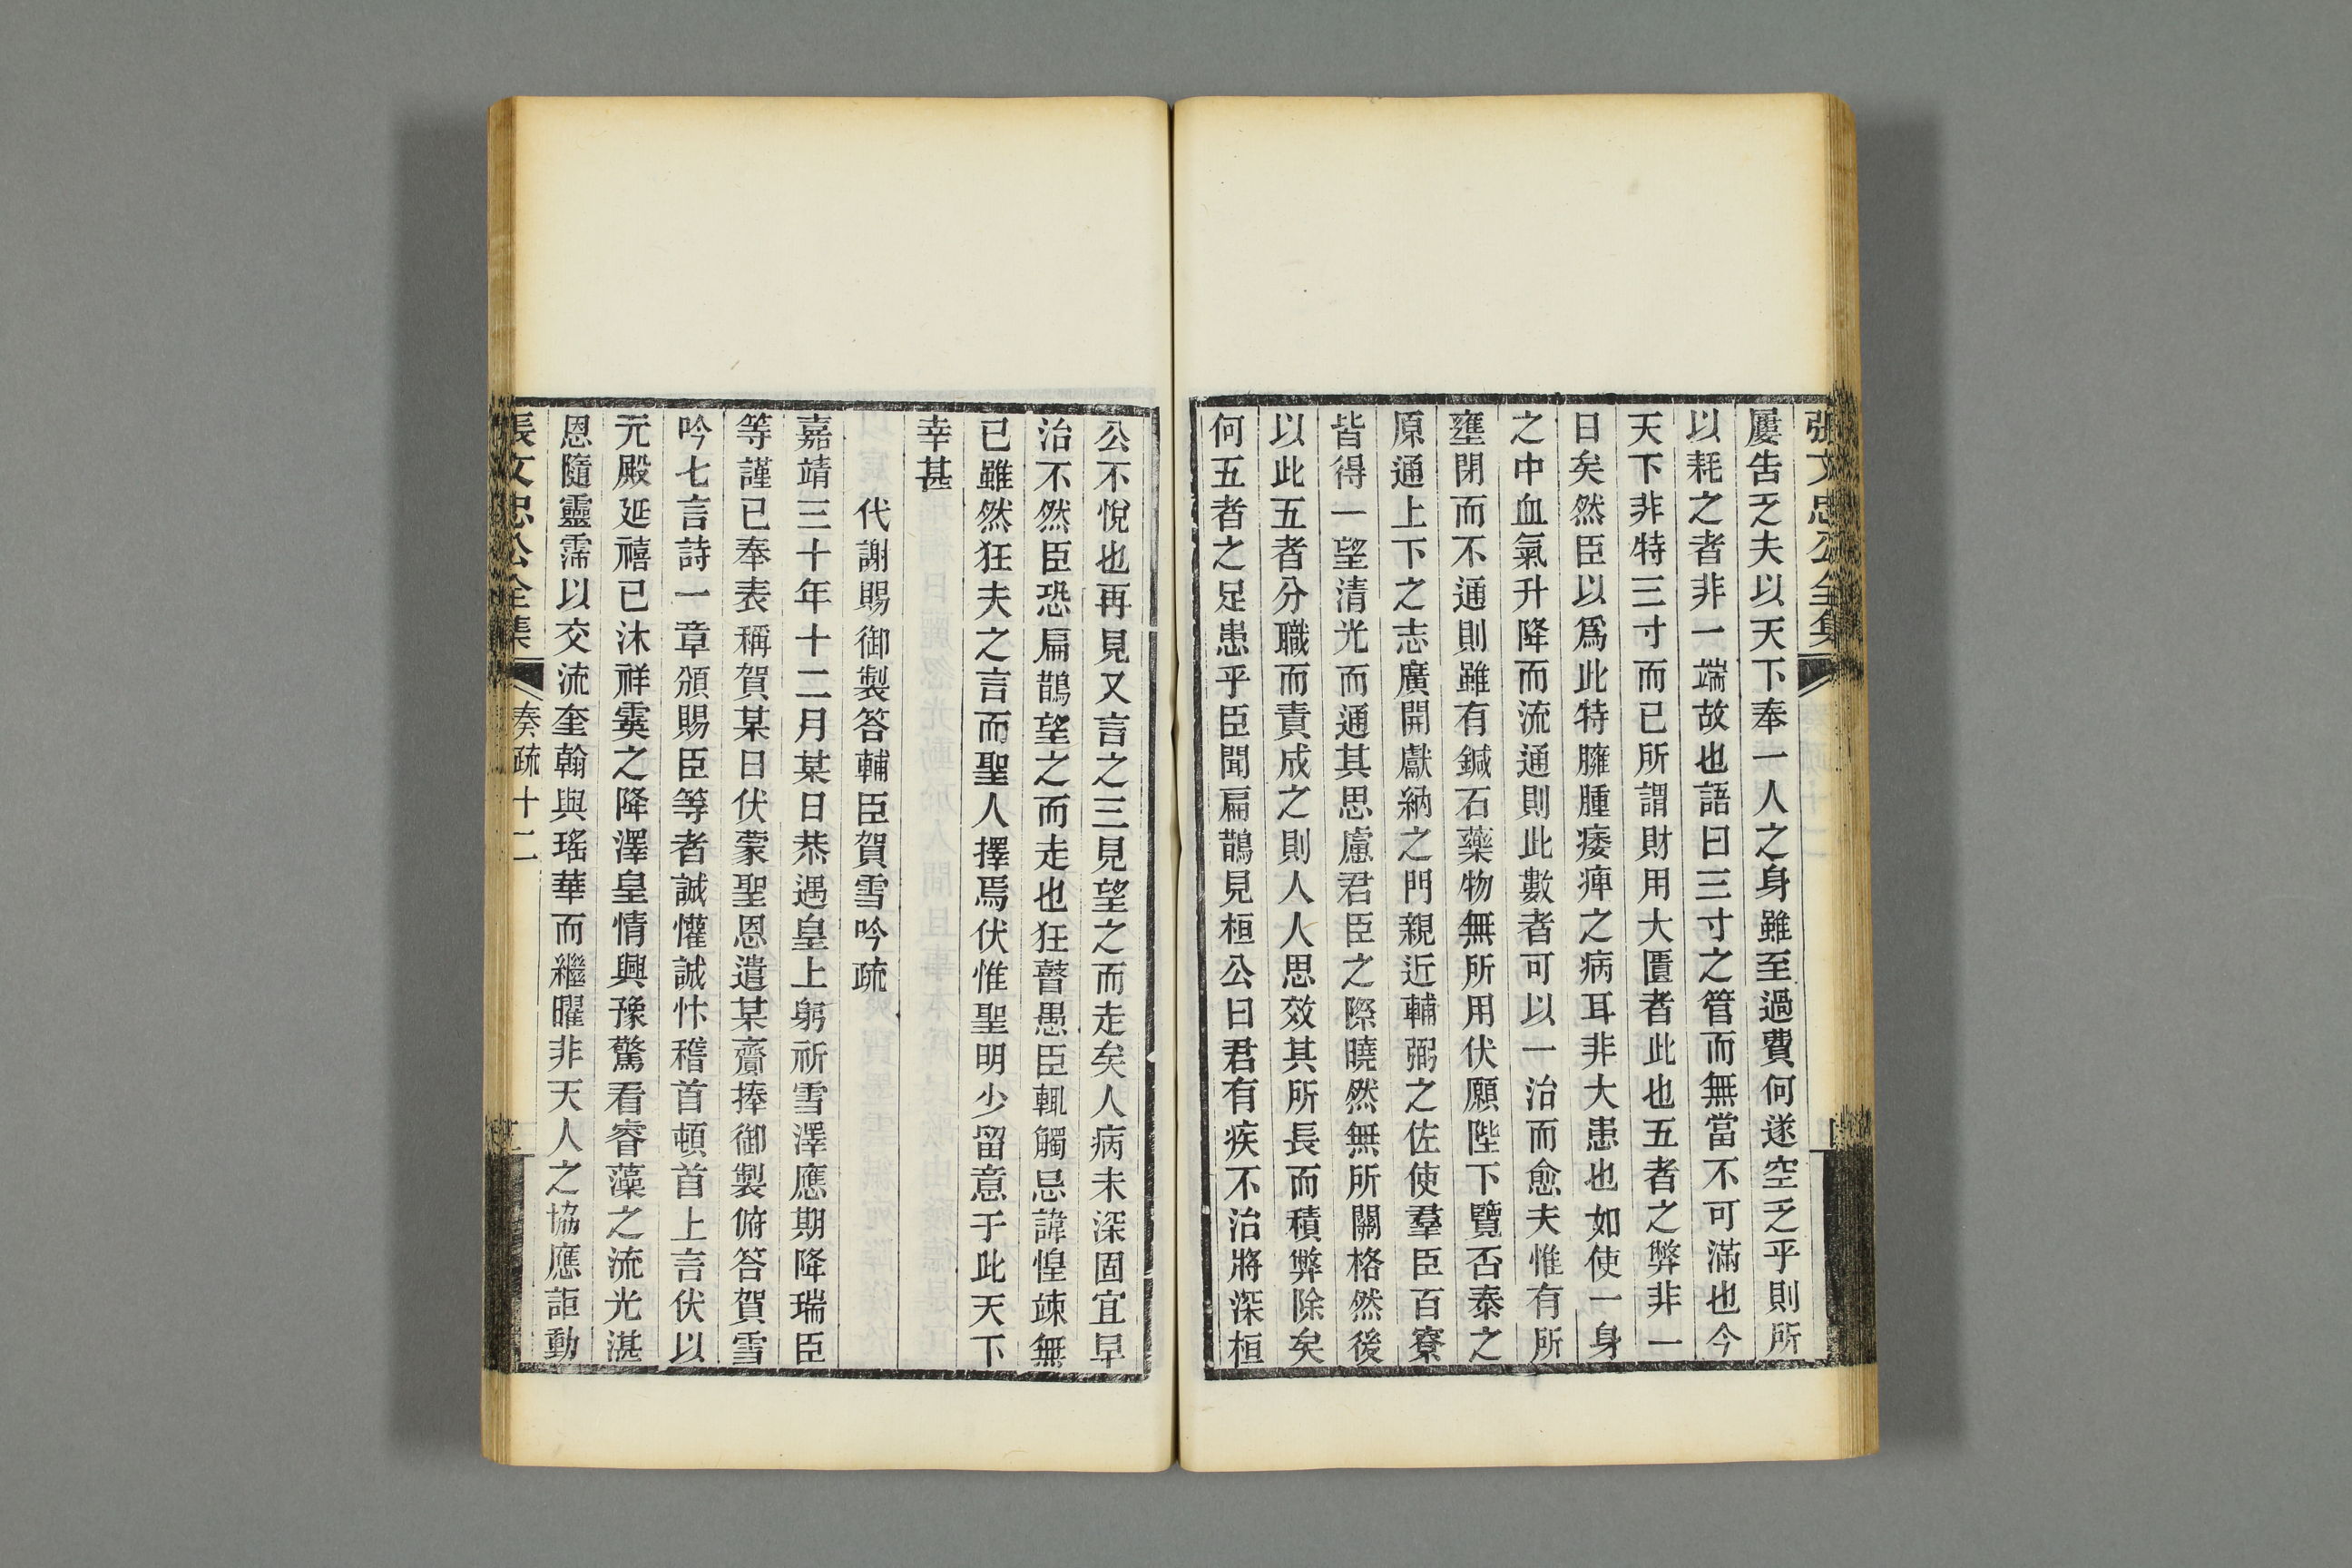 張文忠公全集
屢告乏夫以天下奉一人之身雖至過費何遂空乏乎則所
以耗之者非一端故也語曰三寸之管而無當不可滿也今
天下非特三寸而已所謂財用大匱者此也五者之弊非一
日矣然臣以爲此特臃腫痿痺之病耳非大患也如使一身
之中血氣升降而流通則此數者可以一治而愈夫惟有所
壅閉而不通則雖有鍼石藥物無所用伏願陛下覽否泰之
原通上下之志廣開獻納之門親近輔弼之佐使羣臣百寮
皆得一望清光而通其思慮君臣之際曉然無所關格然後
以此五者分職而責成之則人人思效其所長而積弊除矣
何五者之足患乎臣聞扁鵲見桓公曰君有疾不治將深桓
公不悅也再見又言之三見望之而走矣人病未深固宜早
治不然臣恐扁鵲望之而走也狂瞽愚臣輒觸忌諱惶竦無
已雖然狂夫之言而聖人擇焉伏惟聖明少留意于此天下
幸甚
代謝賜御製答輔臣賀雪吟疏
嘉靖三十年十二月某日恭遇皇上躬祈雪澤應期降瑞臣
等謹已奉表稱賀某日伏蒙聖恩遣某齎捧御製俯答賀雪
吟七言詩一章頒賜臣等者誠懽誠忭稽首頓首上言伏以
元殿延禧已沐祥霙之降澤皇情興豫驚看睿藻之流光湛
恩隨靈霈以交流奎翰與瑤華而繼曜非天人之協應詎動
張文忠公全集 奏疏十二